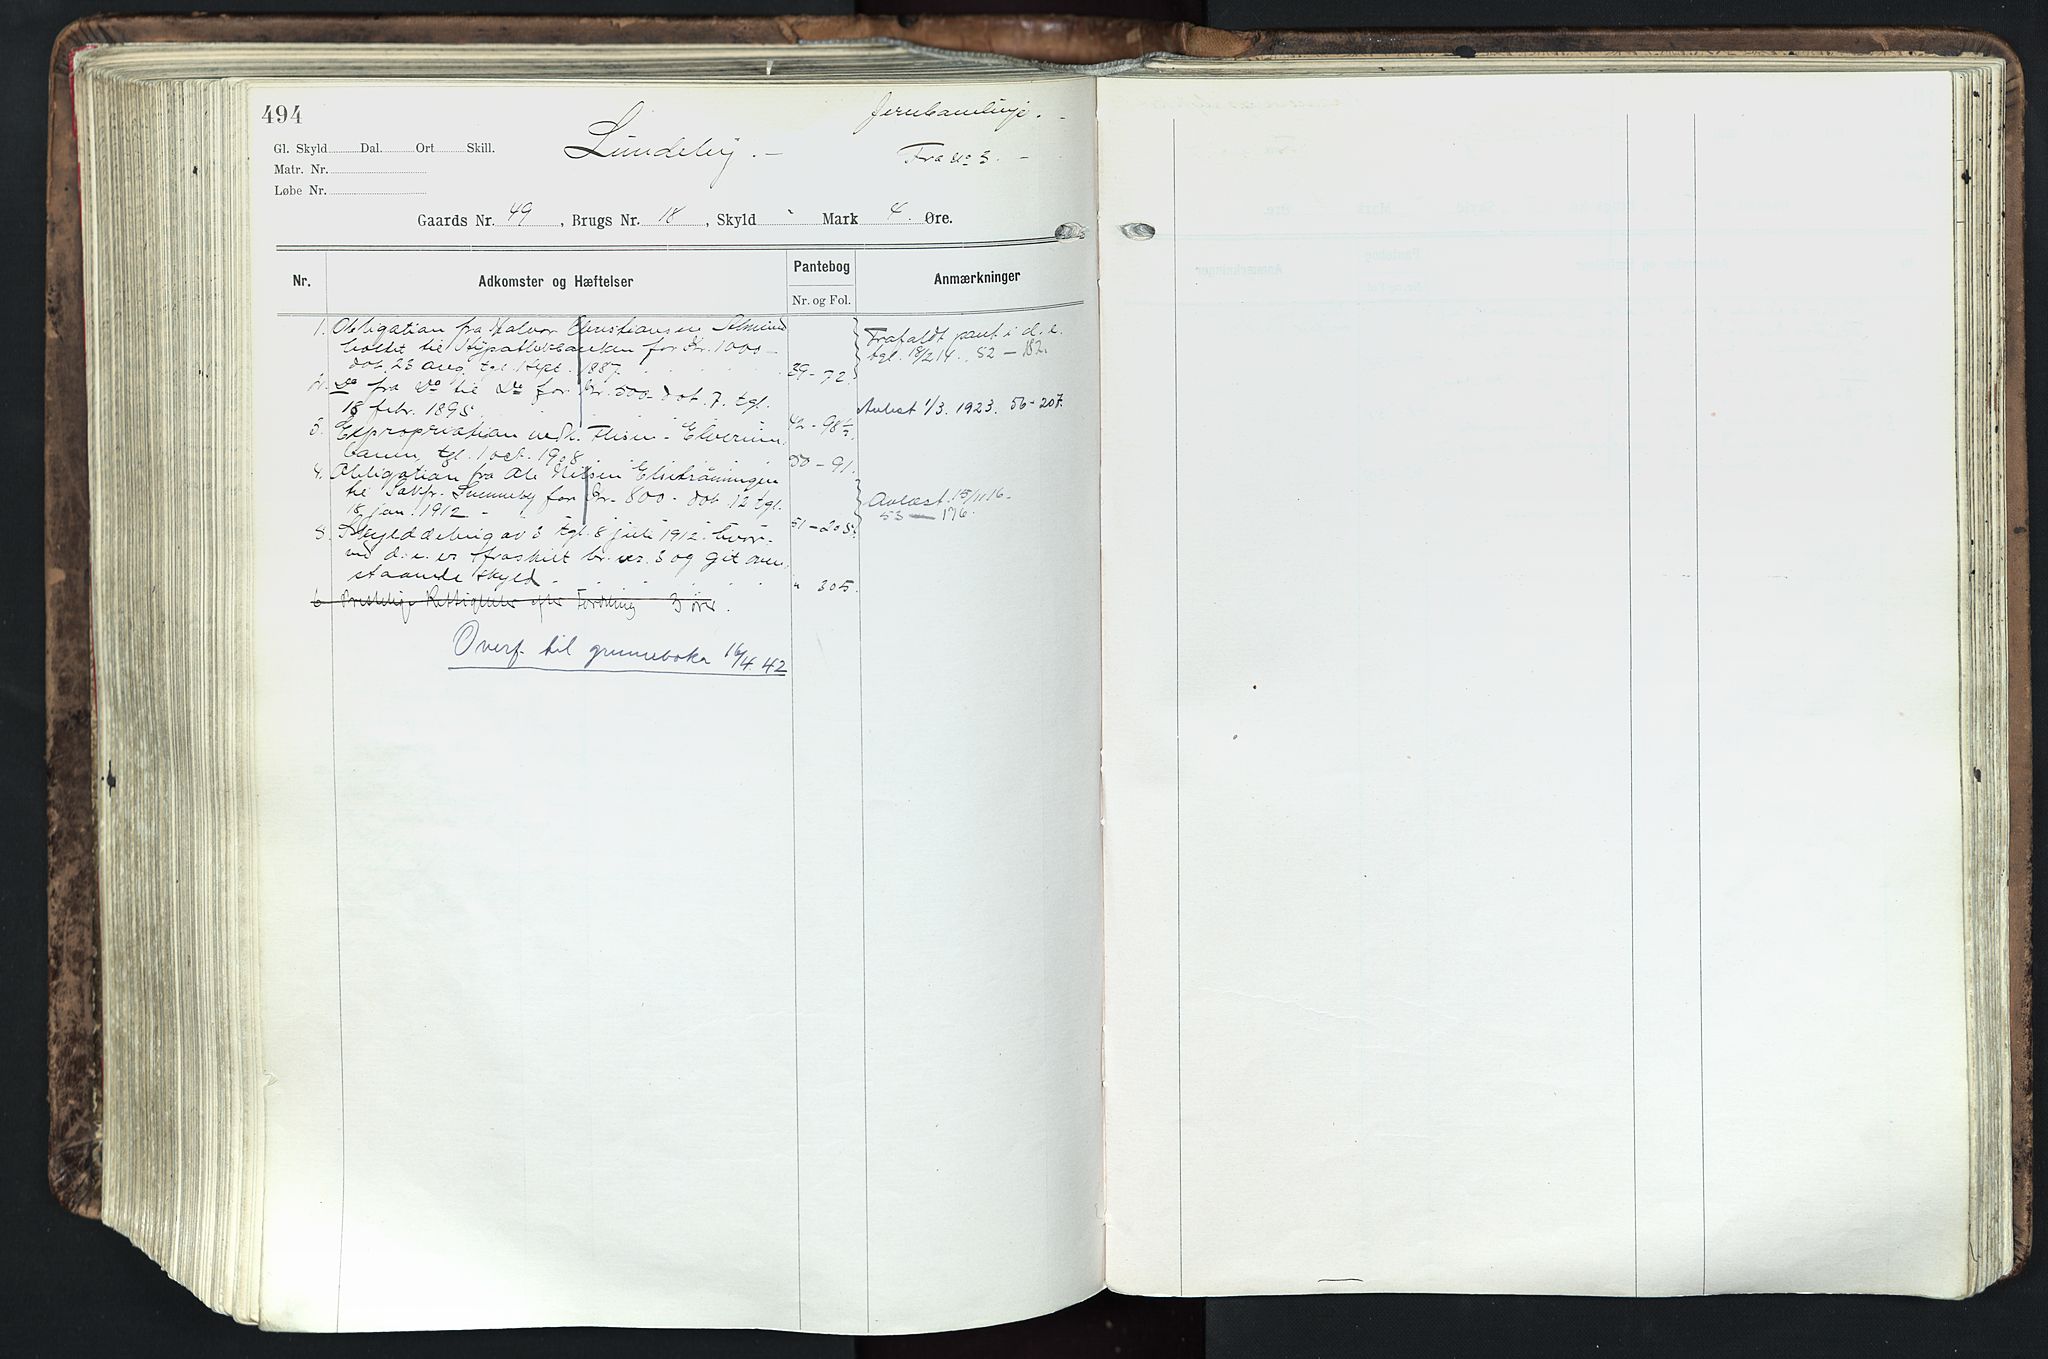 494
Jernbanelinje. -
Gl. Skyld Dal. Ort Skill.
Lundeby. -
Matr. Nr.
Fra no 3. -
Løbe Nr.
Gaards Nr. 49, Brugs Nr. 18, Skyld - Mark 4 Øre.
Nr.
Adkomster og Hæftelser
Pantebog
Nr. og Fol.
Anmærkninger
1. Obligation fra Halvor Christiansen
til Hypothekbanken for Kr. 1000 -
dat. 23 aug. tgl. 1 Sept. 1887. 39 - 72.
Frafaldt pant i d. e.
tgl. 18/2 14. 52 - 182.
2. Do fra Do til Do for Kr. 500 - dat. 7. tgl.
18 febr. 1895. 42 - 98 1/2.
Avlest 1/3. 1923. 56 - 207.
3. Expropriation vedk. Flisen - Elverum
banen, tgl. 1 oct. 1908. 50 - 91.
4. Obligation fra Ole Nilsen
til Sakfr. Sunneby for Kr. 800 - dat. 12 tgl.
18 jan. 1912 - 51 - 205.
Avlæst. 15/11 16 -
53 - 176.
5. Skylddeling av 3 tgl. 8 juli 1912. hvor-
ved d. e. er fraskilt br. nr. 3 og git oven-
staaende skyld. " 305.
6 Prestelige Rettigheter efter Fordeling 3 ører.
Overf. til grunnboka 16/4. 42